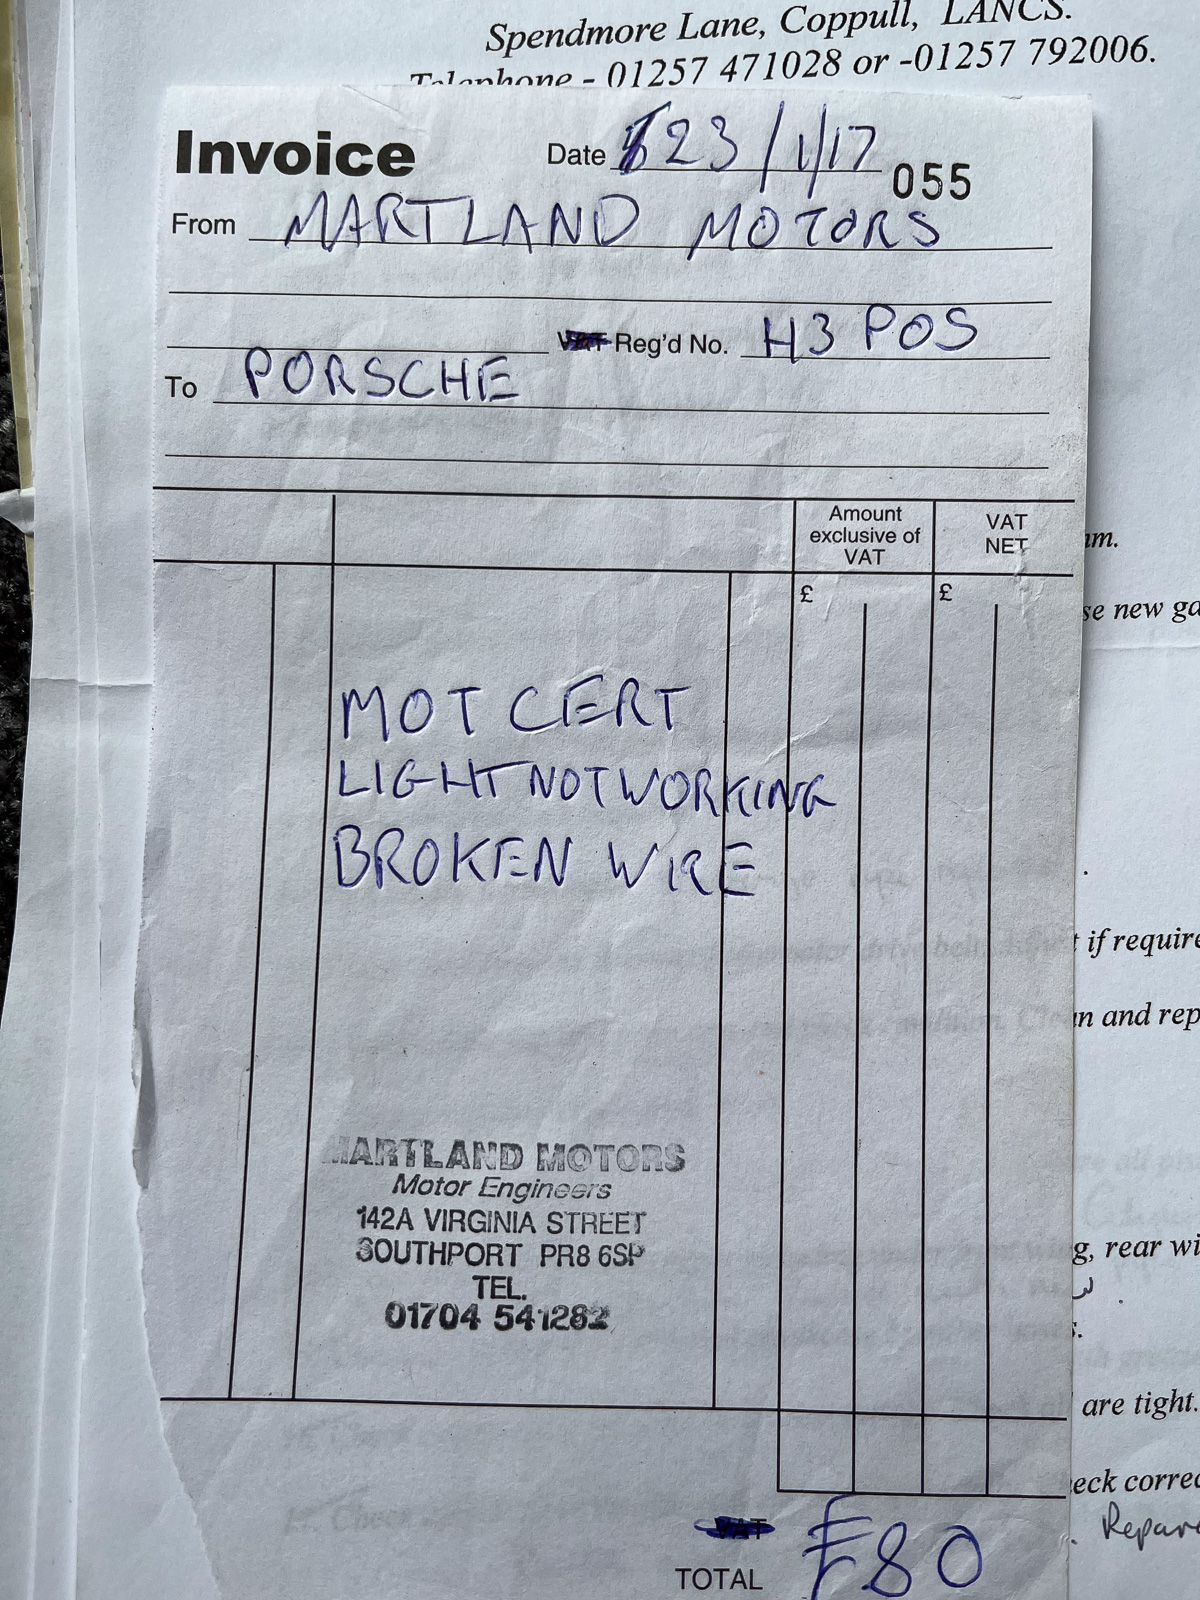 Spendmore Lane, Coppull, LANCS.
Telephone - 01257 471028 or -01257 792006.
Invoice Date 23/1/17 055
From MARTLAND MOTORS
VAT Reg'd No. H3 POS
To PORSCHE
Amount exclusive of VAT
VAT NET
£ £
MOT CERT
LIGHT NOT WORKING
BROKEN WIRE
MARTLAND MOTORS
Motor Engineers
142A VIRGINIA STREET
SOUTHPORT PR8 6SP
TEL.
01704 541282
VAT
TOTAL £80
new
if require
and rep
rear wi
are tight.
correc